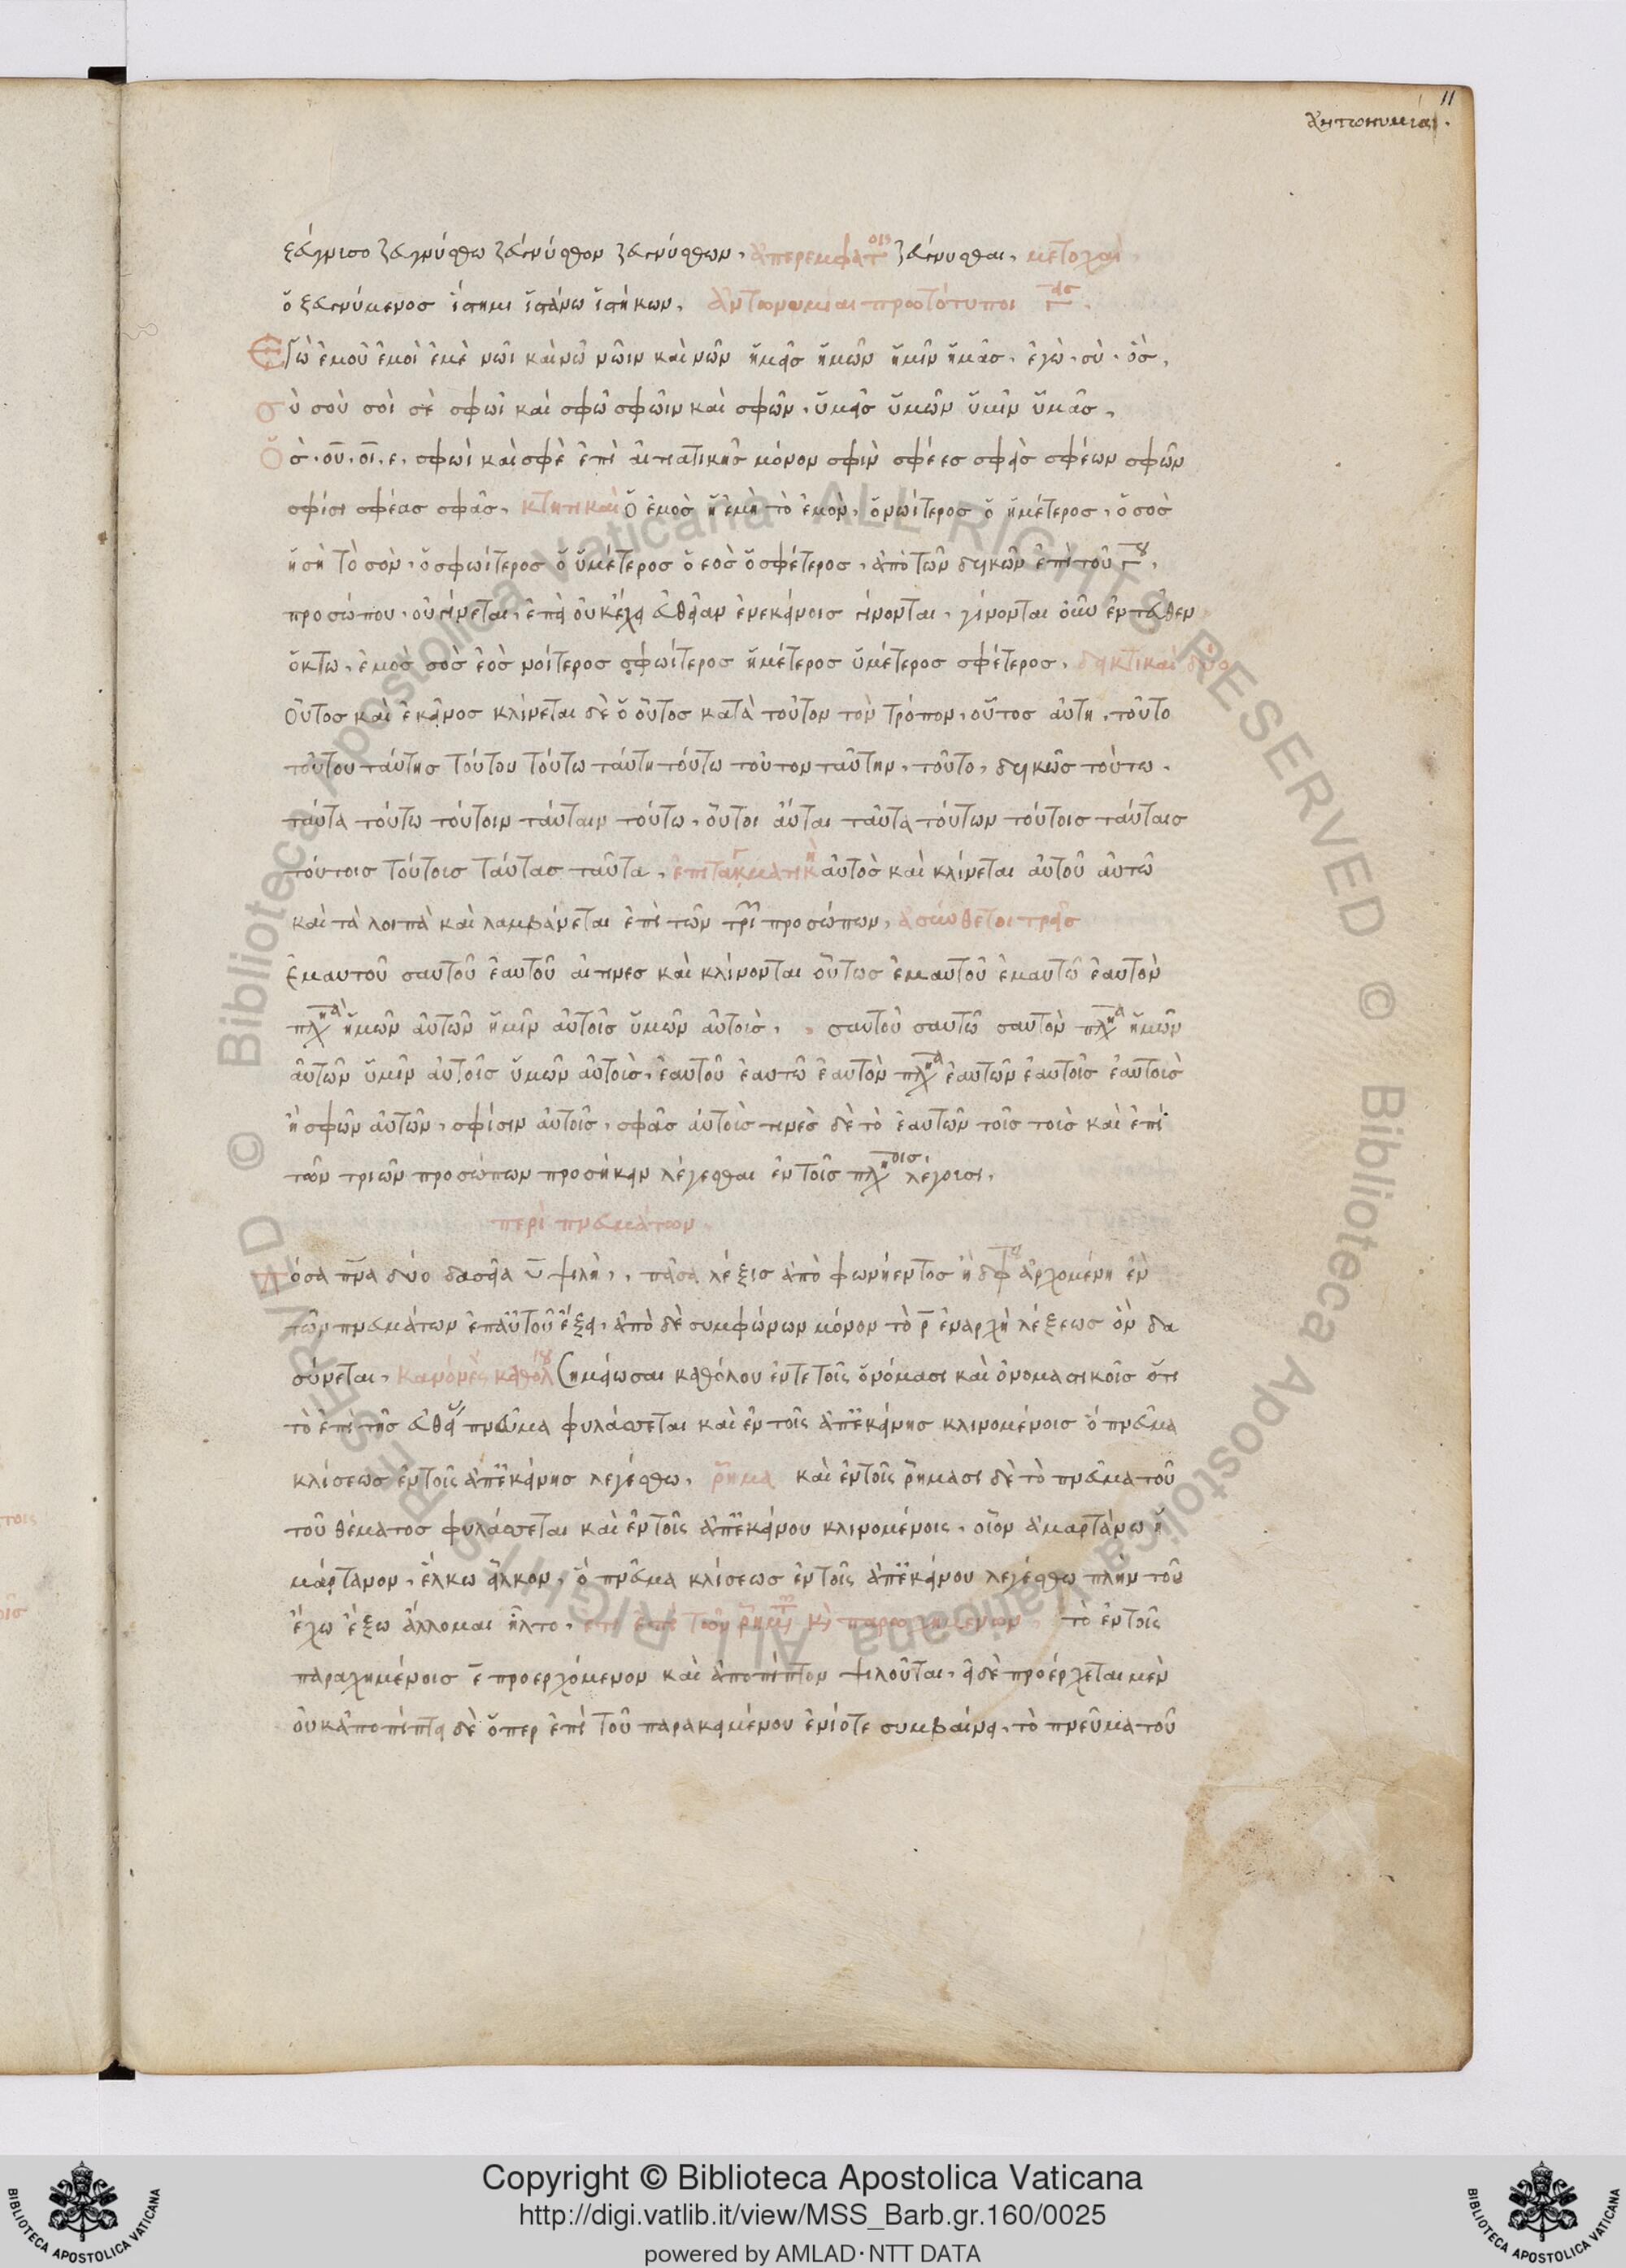 11
ἀντωνυμίαι.
ζεύγνυσο ζευγνύσθω ζεύγνυσθον ζευγνύσθων, ἀπερεμφατοις ζεύγνυσθαι, μετοχαὶ
ὁ ζευγνύμενοσ ἵστημι ἱστάνω ἱστήκων, ἀντωνυμίαι πρωτότυποι
Ἐγὼ ἐμοῦ ἐμοὶ ἐμὲ νῶϊ καὶ νῶ νῶιν καὶ νῶν ἡμεῖσ ἡμῶν ἡμῖν ἡμᾶσ, ἐγὼ, σὺ, ὃσ,
σὺ σοῦ σοὶ σὲ σφωῒ καὶ σφῶ σφῶϊν καὶ σφῶν, ὑμεῖσ ὑμῶν ὑμῖν ὑμᾶσ,
Ὃσ, οὗ, οἷ, ε, σφωὶ καὶ σφὲ ἐπὶ αἰτιατικῆσ μόνον σφὶν σφέεσ σφεῖσ σφέων σφῶν
σφίσι σφέασ σφᾶσ, κτητικαὶ ὁ ἐμὸσ ἡ ἐμὴ τὸ ἐμὸν, ὁ νωίτεροσ ὁ ἡμέτεροσ, ὁ σοσ
ἡ σὴ τὸ σὸν, ὁ σφωίτεροσ ὁ ὑμέτεροσ ὁ εοσ ὁ σφέτεροσ, ἀπὸ τῶν δυικῶν ἐπὶ τοῦ
προσώπου, οὐ γίνεται, ἐπεὶ οὐκ ἔχει εὐθεῖαν ἐν ἐκείνοισ γίνονται, γίνονται οὖν ἐντεῦθεν
ὀκτω, ἐμοσ σὸσ ἑὸσ νοίτεροσ σφωίτεροσ ἡμέτεροσ ὑμέτεροσ σφέτεροσ, δεικτικαὶ δύο
Οὗτοσ καὶ ἐκεῖνοσ κλίνεται δὲ ὁ οὗτοσ κατὰ τοῦτον τὸν τρόπον, οὗτοσ αὕτη, τοῦτο
τούτου ταύτησ τούτου τούτω ταύτη τούτω τοῦτον ταῦτην, τοῦτο, δυικῶσ τούτω,
ταύτα τούτω τούτοιν ταύταιν τούτω, οὗτοι αὗται ταῦτα τούτων τούτοισ ταύταισ
τούτοισ τούτοισ ταύτασ ταῦτα, ἐπιταγματικὴ αὐτὸσ καὶ κλίνεται αὐτοῦ αὐτῶ
καὶ τὰ λοιπὰ καὶ λαμβάνεται ἐπὶ τῶν τρι προσώπων, ἀσύνθετοι τρεῖσ
Ἐμαυτοῦ σαυτοῦ ἑαυτοῦ αἵτινεσ καὶ κλίνονται οὕτωσ ἐμαυτοῦ ἐμαυτῶ ἑαυτὸν
ἡμῶν αὐτῶν ἡμῖν αὐτοῖσ ὑμῶν αὐτοὶσ, σαυτοῦ σαυτῶ σαυτὸν ἡμῶν
αὐτῶν ὑμῖν αὐτοῖσ ὑμῶν αὐτοὶσ, ἑαυτοῦ ἑαυτῶ ἑαυτὸν ἑαυτῶν ἑαυτοῖσ ἑαυτοὶσ
ἢ σφῶν αὐτῶν, σφίσιν αὐτοῖσ, σφᾶσ αὐτοὶσ τινὲσ δὲ τὸ ἑαυτῶν τοῖσ τοὶσ καὶ ἐπὶ
τῶν τριῶν προσώπων προσήκειν λέγεσθαι ἐν τοῖσ λέγουσι,
περὶ πνευμάτων
Πόσα πνα δύο δασεῖα ψιλὴ, πᾶσα λέξισ ἀπὸ φωνήεντοσ ἢ ἀρχομένη ἓν
τῶν πνευμάτων ἐπαὐτοῦ ἕξει, ἀπὸ δὲ συμφώνων μόνον τὸ ρ ἐναρχῆ λέξεωσ ὂν δα
σύνεται, κανόνες καθόλ σημείωσαι καθόλου ἐν τε τοῖς ὀνόμασι καὶ ὀνοματικοῖσ ὅτι
τὸ ἐπὶ τῆσ εὐθεί πνεῦμα φυλάττεται καὶ ἐν τοῖς ἀπἐκείνησ κλινομένοισ ὁ πνεῦμα
κλίσεωσ ἐν τοῖς ἀπἐκείνησ λεγέσθω, ῥῆμα καὶ ἐν τοῖς ῥήμασι δὲ τὸ πνεῦμα τοῦ
τοῦ θέματοσ φυλάττεται καὶ ἐν τοῖς ἀπἐκείνου κλινομένοις, οἷον ἁμαρτάνω ἡ
μάρτανον, ἕλκω εἷλκον, ὁ πνεῦμα κλίσεωσ ἐν τοῖς ἀπἐκείνου λεγέσθω πλὴν τοῦ
ἔχω ἕξω ἅλλομαι ἦλτο, ἔτι ἐπὶ τῶν παρωχημένων, τὸ ἐν τοῖς
παραχημένοισ ε προερχόμενον καὶ ἀποπίπτον ψιλοῦται, εἰ δὲ προέρχεται μὲν
οὐκ ἀποπίπτει δὲ ὅπερ ἐπὶ τοῦ παρακειμένου ἐνίοτε συμβαίνει, τὸ πνεῦμα τοῦ
Copyright © Biblioteca Apostolica Vaticana
http://digi.vatlib.it/view/MSS_Barb.gr.160/0025
powered by AMLAD·NTT DATA